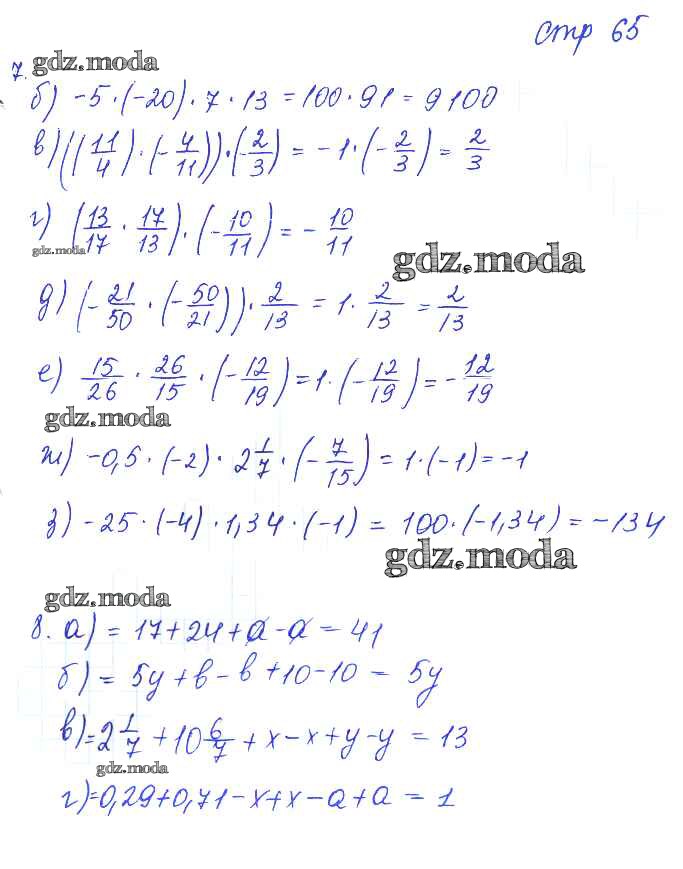 стр 65
7. gdz.moda
б) -5·(-20)·7·13 = 100·91 = 9100
в) ((11/4)·(-4/11))·(-2/3) = -1·(-2/3) = 2/3
г) (13/17 · 17/13)·(-10/11) = -10/11
gdz.moda
gdz.moda
д) (-21/50 · (-50/21))· 2/13 = 1· 2/13 = 2/13
е) 15/26 · 26/15 · (-12/19) = 1·(-12/19) = -12/19
gdz.moda
ж) -0,5·(-2)· 2 1/7 ·(-7/15) = 1·(-1) = -1
з) -25·(-4)·1,34·(-1) = 100·(-1,34) = -134
gdz.moda
gdz.moda
8. а) = 17+24+a-a = 41
б) = 5y+в-в+10-10 = 5y
в) = 2 1/7 + 10 6/7 + x-x+y-y = 13
gdz.moda
г) = 0,29+0,71-x+x-a+a = 1